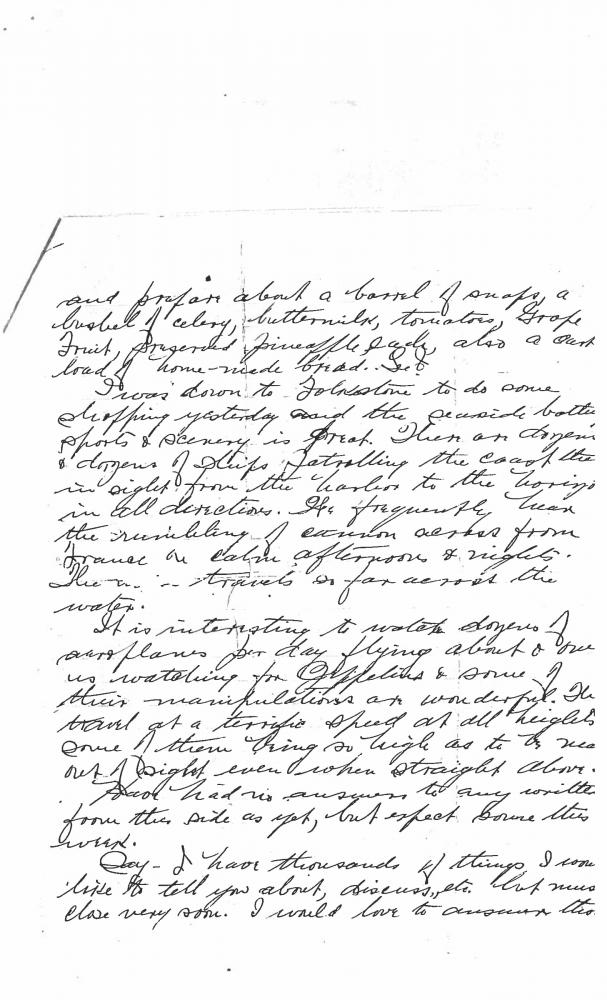 and prepare about a barrel of snaps, a
bushel of celery, buttermilk, tomatoes, Grape
Fruit, preserved pineapple, also a cart
load of home-made bread.
I was down to Folkstone to do some
shopping yesterday and the seaside
sports & scenery is great. There are dozens
& dozens of ships patrolling the coast
in sight from the harbor to the horizo
in all directions. We frequently hear
the rumbling of cannon across from
France on calm afternoons & nights.
The travels so far across the
water.
It is interesting to watch dozens of
aeroplanes per day flying about & ove
us watching for Zeppelins & some of
their manipulations are wonderful. The
travel at a terrific speed at all heights
some of them being so high as to be nea
out of sight even when straight above.
Have had no answers to any writte
from this side as yet, but expect some this
week.
Say - I have thousands of things I wou
like to tell you about, discuss, etc. but mus
close very soon. I would love to answer